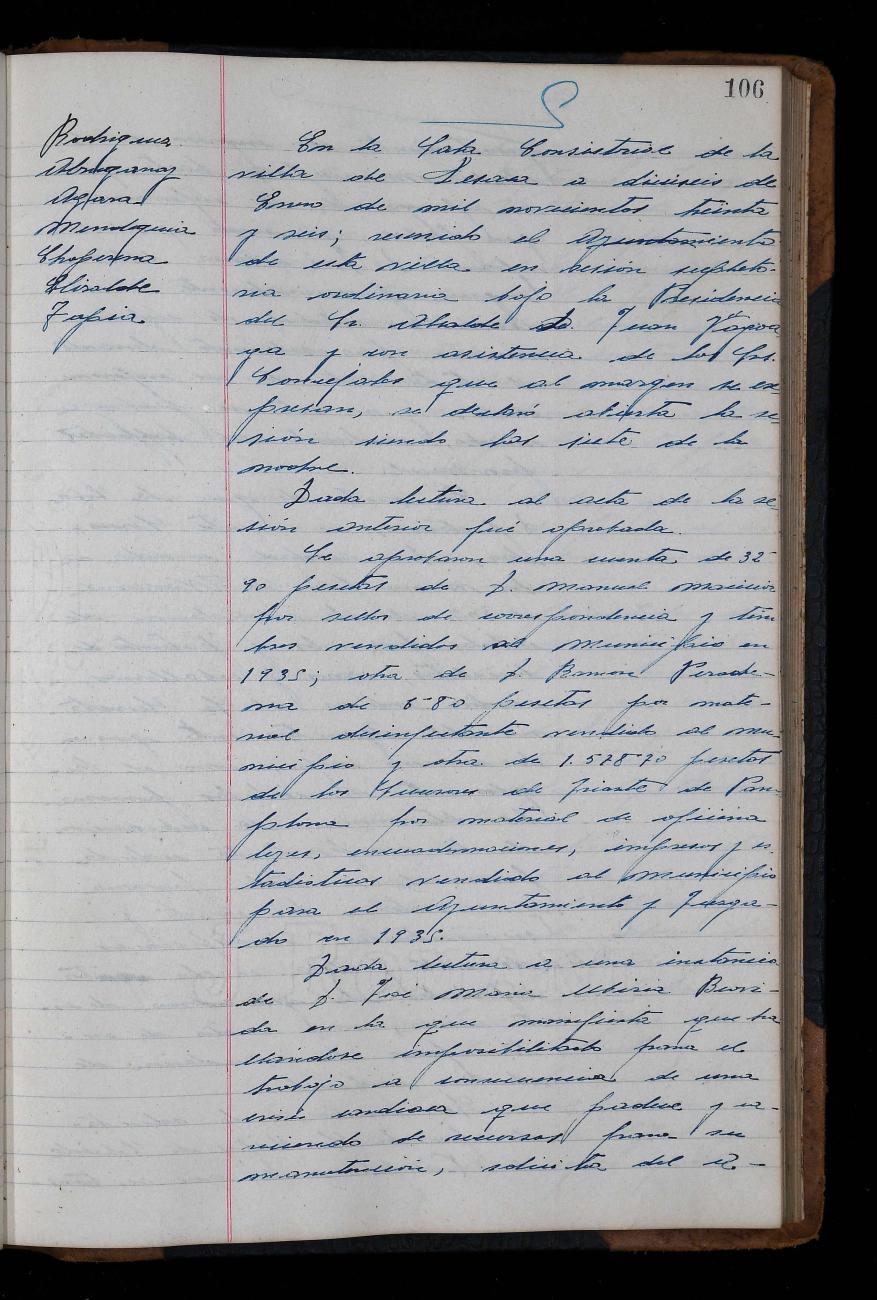 106
Rodriguez
Abugaray
Agara
Mendiguia
Choperena
Elizalde
Tapia
En la Sala Consistorial de la
villa de Lesaca a dieciseis de
Enero de mil novecientos treinta
y seis; reunido el Ayuntamiento
de esta villa en sesión supleto-
ria ordinaria bajo la Presidencia
del Sr. Alcalde D. Juan
ya y con asistencia de los Srs.
Concejales que al margen se ex-
presan, se declaró abierta la se-
sión siendo las siete de la
noche.
Dada lectura al acta de la se-
sión anterior fué aprobada.
Se aprobaron una cuenta de 32'
90 pesetas de D. Manuel
por sellos de correspondencia y tim-
bres vendidos al Municipio en
1935; otra de D. Ramón Perode-
na de 6'80 pesetas por mate-
rial desinfectante vendido al mu-
nicipio y otra de 1.578'70 pesetas
de los Sucesores de Iriarte de Pam-
plona por material de oficina
leyes, encuadernaciones, impresos y es-
tadisticas vendido al Municipio
para el Ayuntamiento y Juzga-
do en 1935.
Dada lectura a una instancia
de D. José Maria Ubiria
da en la que manifiesta que ha
llándose imposibilitado para el
trabajo a consecuencia de una
crisis cardiaca que padece y ca-
reciendo de recursos para su
manutención, solicita del A-